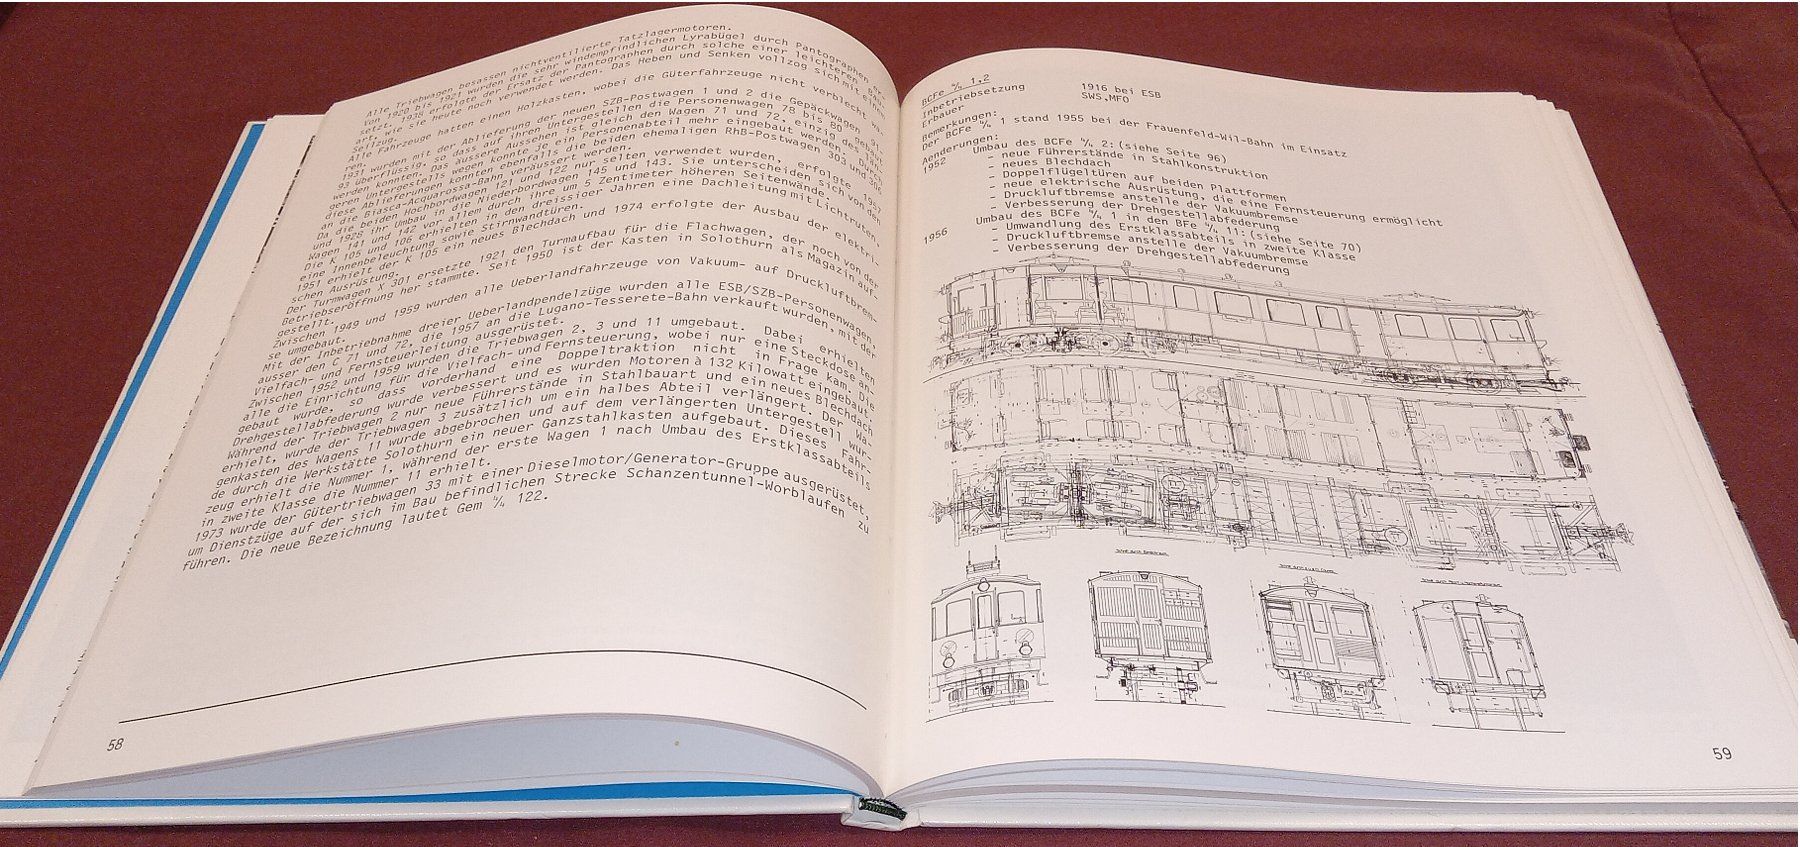 Alle Triebwagen besassen nichtventilierte Tatzlagermotoren.
Von 1920 bis 1921 wurden die sehr windempfindlichen Lyrabügel durch Pantographen er-
setzt. 1938 erfolgte der Ersatz der Pantographen durch solche einer leichteren Bau-
art, wie sie heute noch verwendet werden. Das Heben und Senken vollzog sich mit einem
Seilzug.
Alle Fahrzeuge hatten einen Holzkasten, wobei die Güterfahrzeuge nicht verblecht wa-
ren.
1931 wurden mit der Ablieferung der neuen SZB-Postwagen 1 und 2 die Gepäckwagen 91-
93 überflüssig, so dass auf ihren Untergestellen die Personenwagen 78 bis 80 gebaut
werden konnten. Das äussere Aussehen ist gleich den Wagen 71 und 72, einzig des län-
geren Untergestells wegen konnte je ein Personenabteil mehr eingebaut werden. Durch
diese Ablieferungen konnten ebenfalls die beiden ehemaligen RhB-Postwagen 303 und 306
an die Biasca-Acquarossa-Bahn veräussert werden.
Da die beiden Hochbordwagen 121 und 122 nur selten verwendet wurden, erfolgte 1937
und 1928 ihr Umbau in die Niederbordwagen 145 und 143. Sie unterscheiden sich von den
Wagen 141 und 142 vor allem durch ihre um 5 Zentimeter höheren Seitenwände.
Die K 105 und 106 erhielten in den dreissiger Jahren eine Dachleitung mit Lichtruten,
eine Innenbeleuchtung sowie Stirnwandtüren.
1951 erhielt der K 105 ein neues Blechdach und 1974 erfolgte der Ausbau der elektri-
schen Ausrüstung.
Der Turmwagen X 301 ersetzte 1921 den Turmaufbau für die Flachwagen, der noch von der
Betriebseröffnung her stammte. Seit 1950 ist der Kasten in Solothurn als Magazin auf-
gestellt.
Zwischen 1949 und 1959 wurden alle Ueberlandfahrzeuge von Vakuum- auf Druckluftbrem-
se umgebaut.
Mit der Inbetriebnahme dreier Ueberlandpendelzüge wurden alle ESB/SZB-Personenwagen,
ausser den C 71 und 72, die 1957 an die Lugano-Tesserete-Bahn verkauft wurden, mit der
Vielfach- und Fernsteuerleitung ausgerüstet.
Zwischen 1952 und 1959 wurden die Triebwagen 2, 3 und 11 umgebaut. Dabei erhielten
alle die Einrichtung für die Vielfach- und Fernsteuerung, wobei nur eine Steckdose an-
gebaut wurde, so dass vorderhand eine Doppeltraktion nicht in Frage kam. Die
Drehgestellabfederung wurde verbessert und es wurden Motoren à 132 Kilowatt eingebaut.
Während der Triebwagen 2 nur neue Führerstände in Stahlbauart und ein neues Blechdach
erhielt, wurde der Triebwagen 3 zusätzlich um ein halbes Abteil verlängert. Der Wa-
genkasten des Wagens 11 wurde abgebrochen und auf dem verlängerten Untergestell wur-
de durch die Werkstätte Solothurn ein neuer Ganzstahlkasten aufgebaut. Dieses Fahr-
zeug erhielt die Nummer 1, während der erste Wagen 1 nach Umbau des Erstklassabteils
in zweite Klasse die Nummer 11 erhielt.
1973 wurde der Gütertriebwagen 33 mit einer Dieselmotor/Generator-Gruppe ausgerüstet,
um Dienstzüge auf der sich im Bau befindlichen Strecke Schanzentunnel-Worblaufen zu
führen. Die neue Bezeichnung lautet Gem 4/4 122.
58
BCFe 4/4 1,2
Inbetriebsetzung 1916 bei ESB
Erbauer SWS,MFO
Bemerkungen:
Der BCFe 4/4 1 stand 1955 bei der Frauenfeld-Wil-Bahn im Einsatz
Aenderungen:
1952 Umbau des BCFe 4/4 2: (siehe Seite 96)
- neue Führerstände in Stahlkonstruktion
- neues Blechdach
- Doppelflügeltüren auf beiden Plattformen
- neue elektrische Ausrüstung, die eine Fernsteuerung ermöglicht
- Druckluftbremse anstelle der Vakuumbremse
- Verbesserung der Drehgestellabfederung
1956 Umbau des BCFe 4/4 1 in den BFe 4/4 11: (siehe Seite 70)
- Umwandlung des Erstklassabteils in zweite Klasse
- Druckluftbremse anstelle der Vakuumbremse
- Verbesserung der Drehgestellabfederung
59